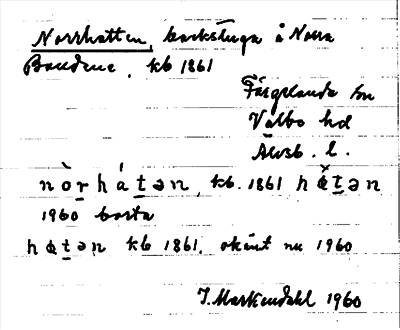 Norrhatten, backstuga å Norra
Bondene, kb 1861
Färgelanda sn
Valbo hd
Älvsb. l.
nòr̲hát̲ən, kb. 1861 hǎt̲ən
1960 borta
hat̲ən kb 1861, okänt nu 1960
J. Markendahl 1960